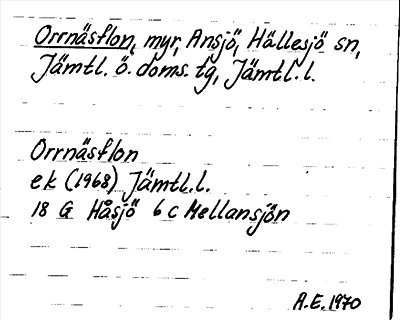 Orrnäsflon, myr, Ansjö, Hällesjö sn,
Jämtl. ö. doms. tg, Jämtl. l.
Orrnäsflon
ek (1968) Jämtl.l.
18 G Håsjö 6 c Mellansjön
A.E. 1970